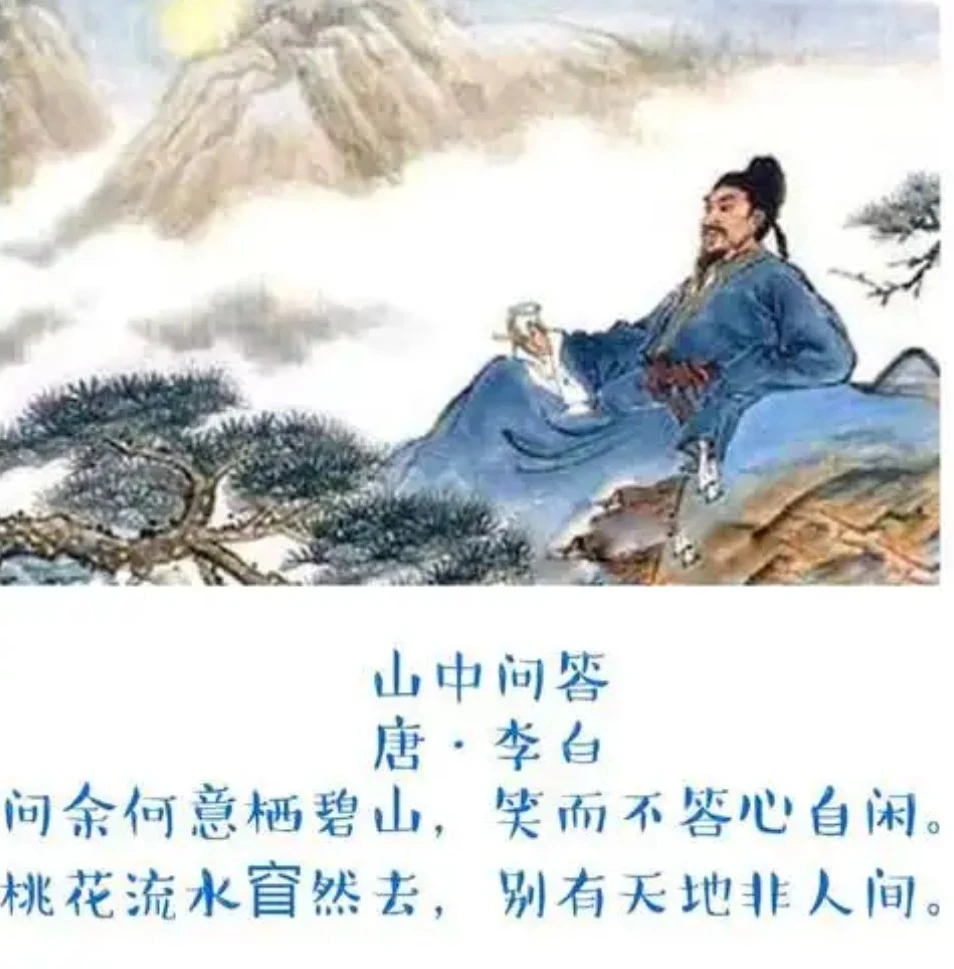 山中问答
唐·李白
问余何意栖碧山，笑而不答心自闲。
桃花流水窅然去，别有天地非人间。